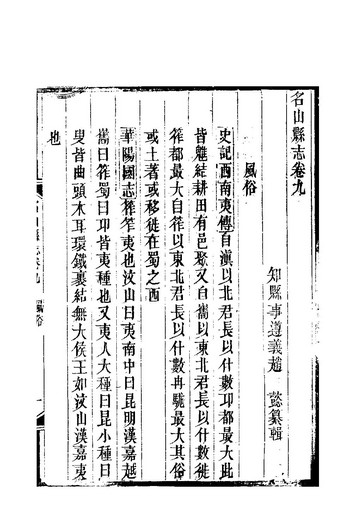 名山縣志卷九
知縣事遵義趙懿纂輯
風俗
史記西南夷傳自滇以北君長以什數卭都最大此
皆魋結耕田有邑聚又自嶲以東北君長以什數徙
筰都最大自筰以東北君長以什數冉駹最大其俗
或土著或移徙在蜀之西
華陽國志筰筰夷也汶山曰夷南中曰昆明漢嘉越
嶲曰筰蜀曰卭皆夷種也又夷人大種曰昆小種曰
叟皆曲頭木耳環鐵裹結無大侯王如汶山漢嘉夷
也
名山縣志卷九
風俗
一